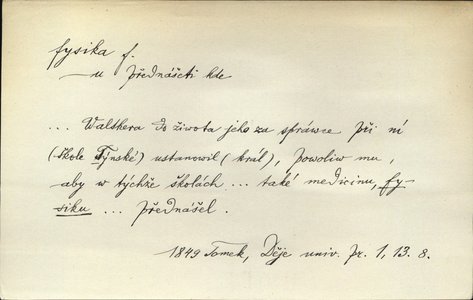 fysika f.
—u přednášeti kde
... Walthera do života jeho za správce při ní
(škole Týnské) ustanovil (král), povoliw mu,
aby w týchže školách ... také medicinu, fy-
siku ... přednášel.
1849 Tomek, Děje univ. pr. 1, 13. 8.